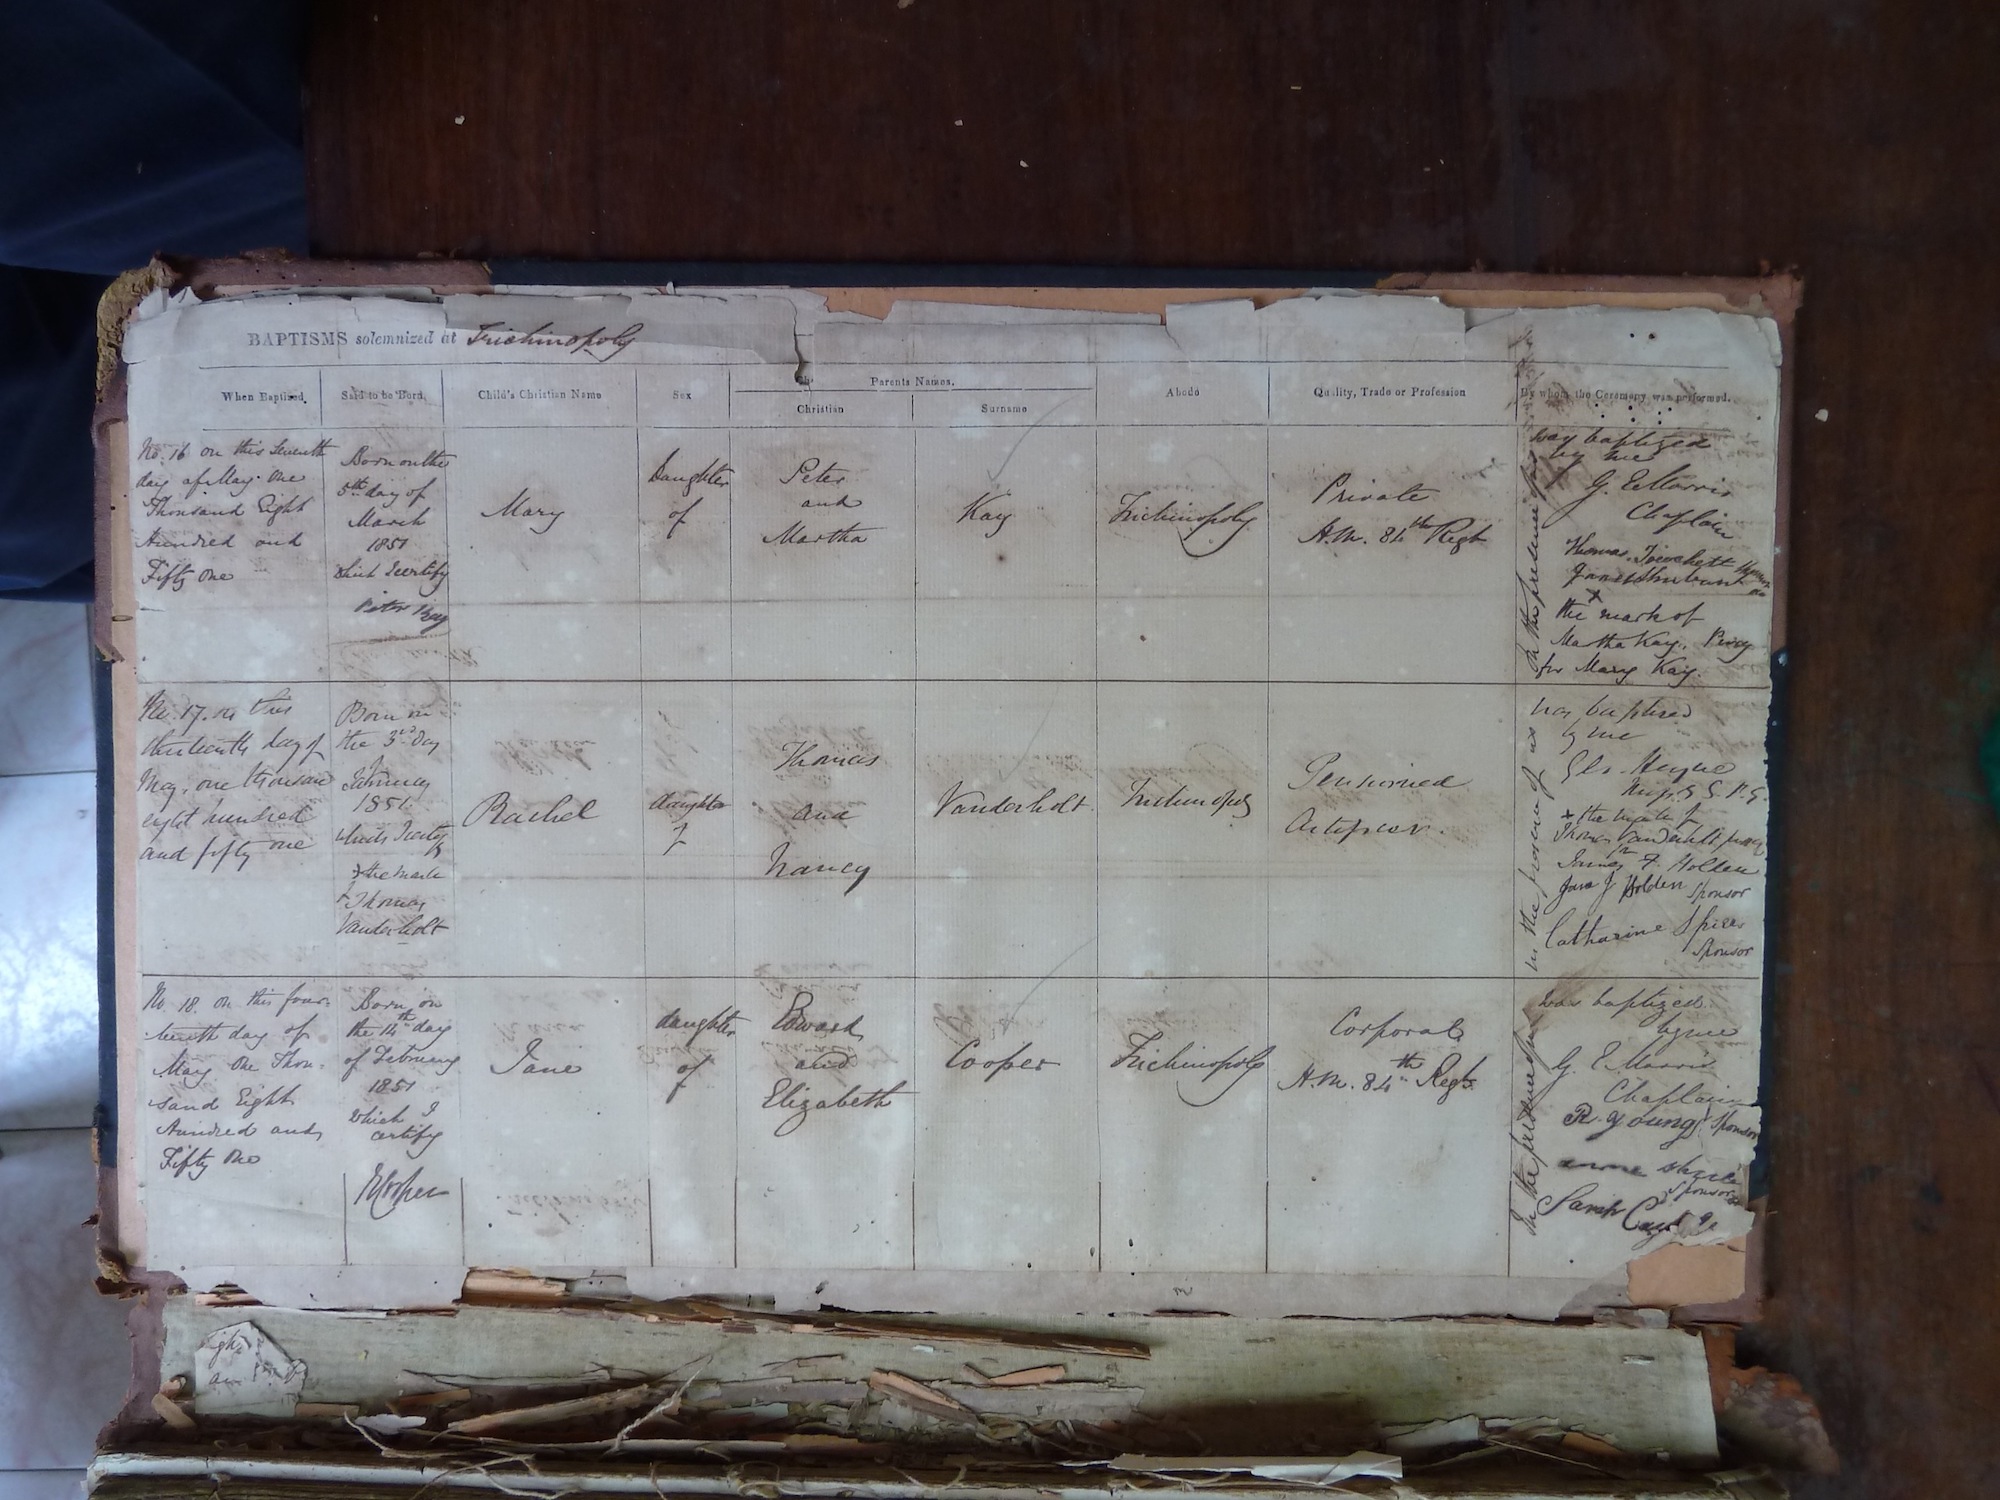 BAPTISMS solemnized at Trichinopoly
When Baptized.
Said to be Born.
Child's Christian Name
Sex
Parents Names.
Christian
Surname
Abode
Quality, Trade or Profession
By whom the Ceremony was performed.
No. 16 on this Seventh
day of May One
Thousand Eight
Hundred and
Fifty One
Born on the
5th day of
March
1851
which I certify
Peter Kay
Mary
Daughter
of
Peter
and
Martha
Kay
Trichinopoly
Private
H.M. 84th Regt
was baptized
by me
G. E. Morris
Chaplain
Thomas
James
X
the mark of
Martha Kay, Proxy
for Mary Kay.
In the presence of us
No. 17. on this
thirteenth day of
May, one thousand
eight hundred
and fifty one
Born on
the 3rd day
February
1851.
which I certify
X the mark
of Thomas
Vanderholt
Rachel
daughter
of
Thomas
and
Nancy
Vanderholt
Trichinopoly
Pensioned
Artificer.
was baptised
by me
Geo. Heyne
Miss. S. P. G.
X the mark of
Thomas Vanderholt proxy
F. Holden
Jane J Holden Sponsor
Catharine Spicer
Sponsor
in the presence of us
No 18. on this four-
teenth day of
May One Thou-
sand Eight
Hundred and
Fifty One
Born on
the 14th day
of February
1851
which I
certify
ECooper
Jane
daughter
of
Edward
and
Elizabeth
Cooper
Trichinopoly
Corporal
H.M. 84th Regt.
was baptized
by me
G. E Morris
Chaplain
R. Young Sponsor
Sponsor
Sarah
In the presence of us